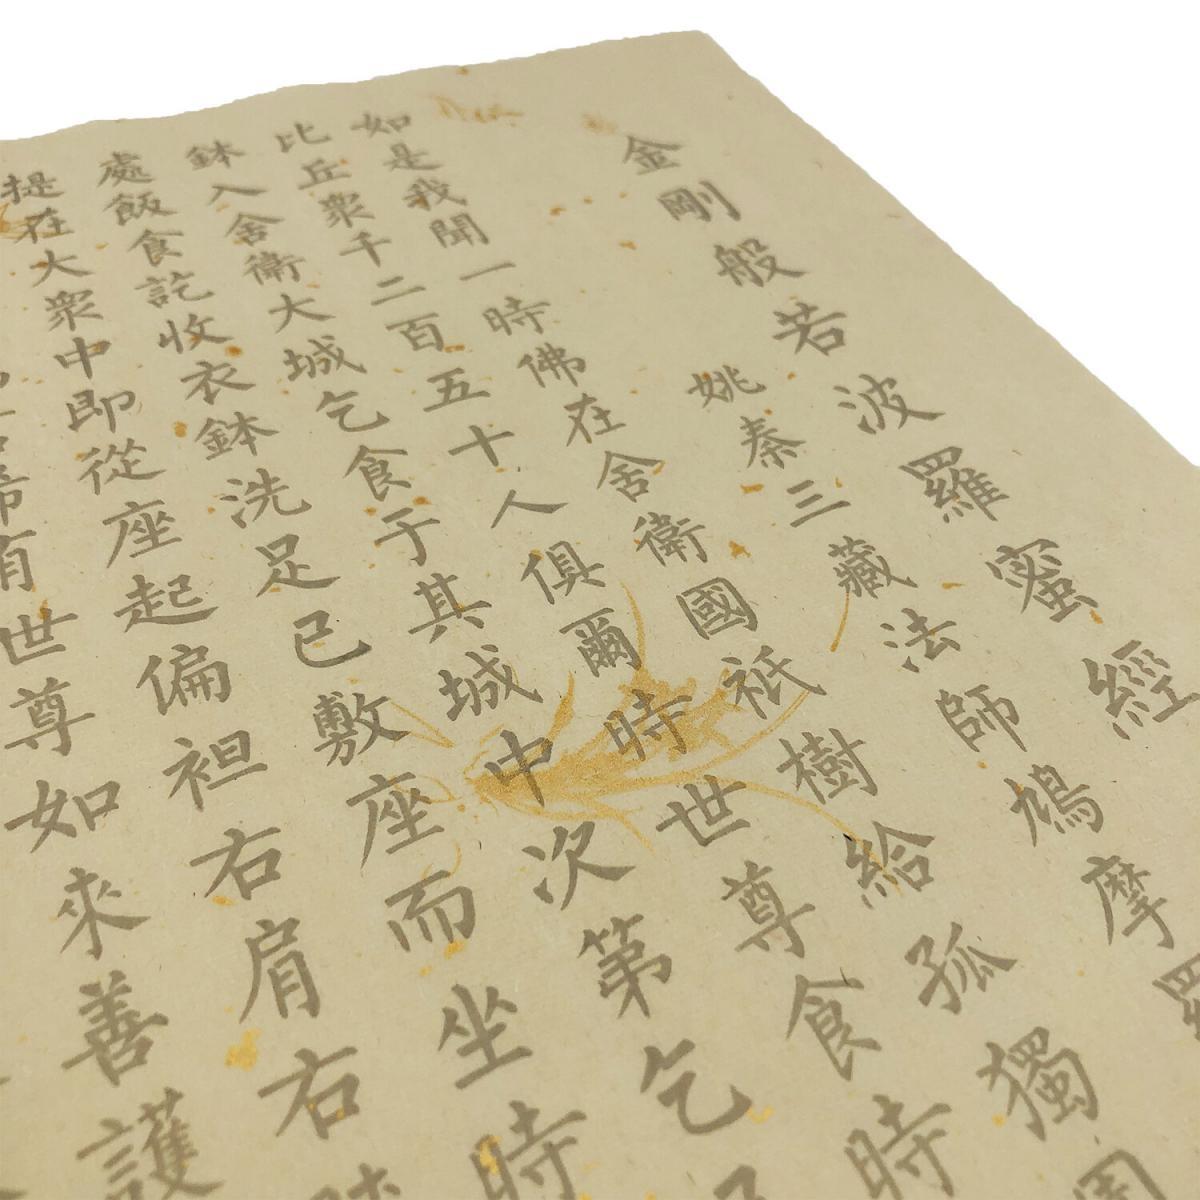 金剛般若波羅蜜經
姚秦三藏法師鳩摩羅
如是我聞一時佛在舍衛國祇樹給孤獨
比丘衆千二百五十人俱爾時世尊食時
鉢入舍衛大城乞食于其城中次第乞
處飯食訖收衣鉢洗足已敷座而坐時
提在大衆中即從座起偏袒右肩右
希有世尊如來善護